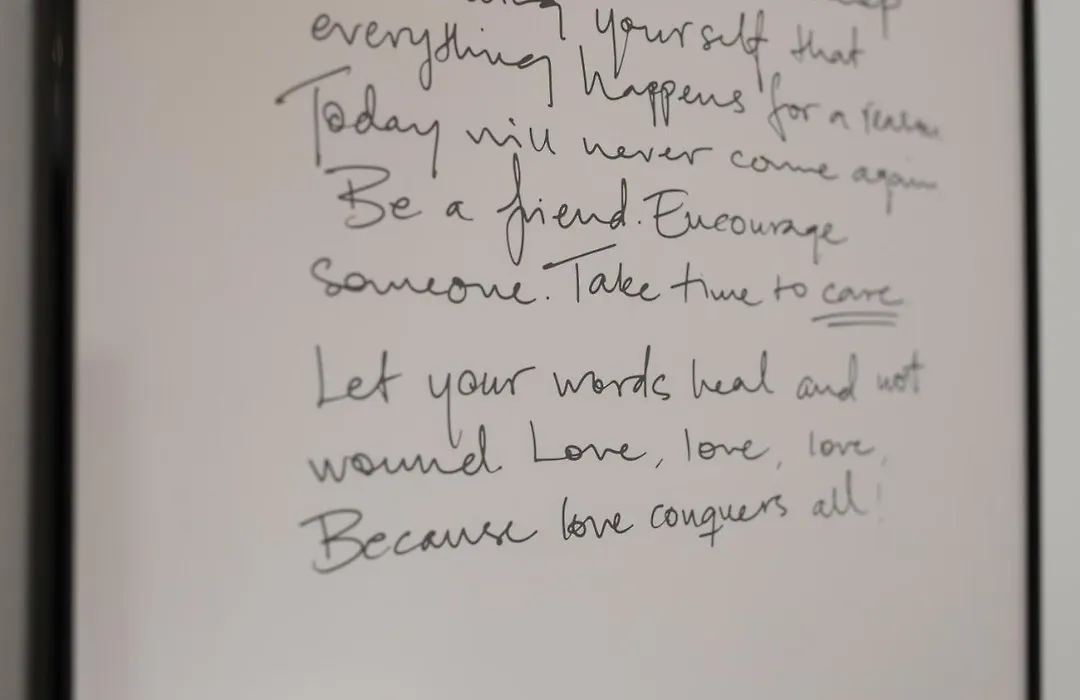 yourself that
everything happens for a reason
Today will never come again
Be a friend. Encourage
someone. Take time to care
Let your words heal and not
wound. Love, love, love,
Because love conquers all!